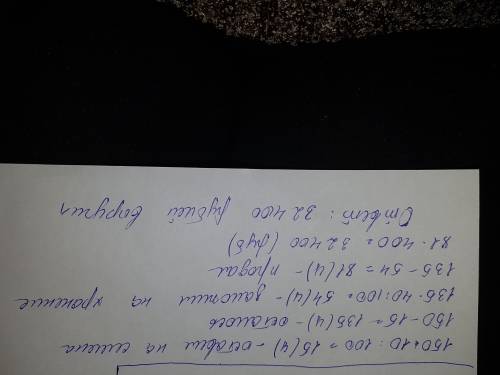 150•10 : 100 = 15 (ц) - оставил на семена
150 - 15 = 135 (ц) - осталось
135•40:100 = 54 (ц) - заложил на хранение
135 - 54 = 81 (ц) - продал
81•400 = 32 400 (руб)
Ответ: 32 400 рублей выручил